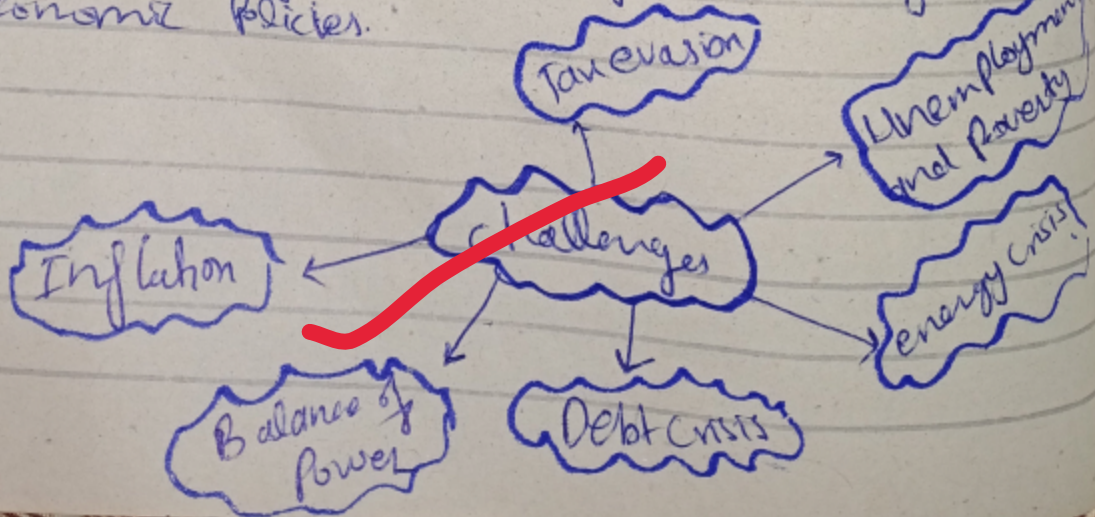 onomic Policies.
Tax evasion
Unemployment
and Poverty
challenges
Inflation
energy crisis
Balance of
Power
Debt crisis